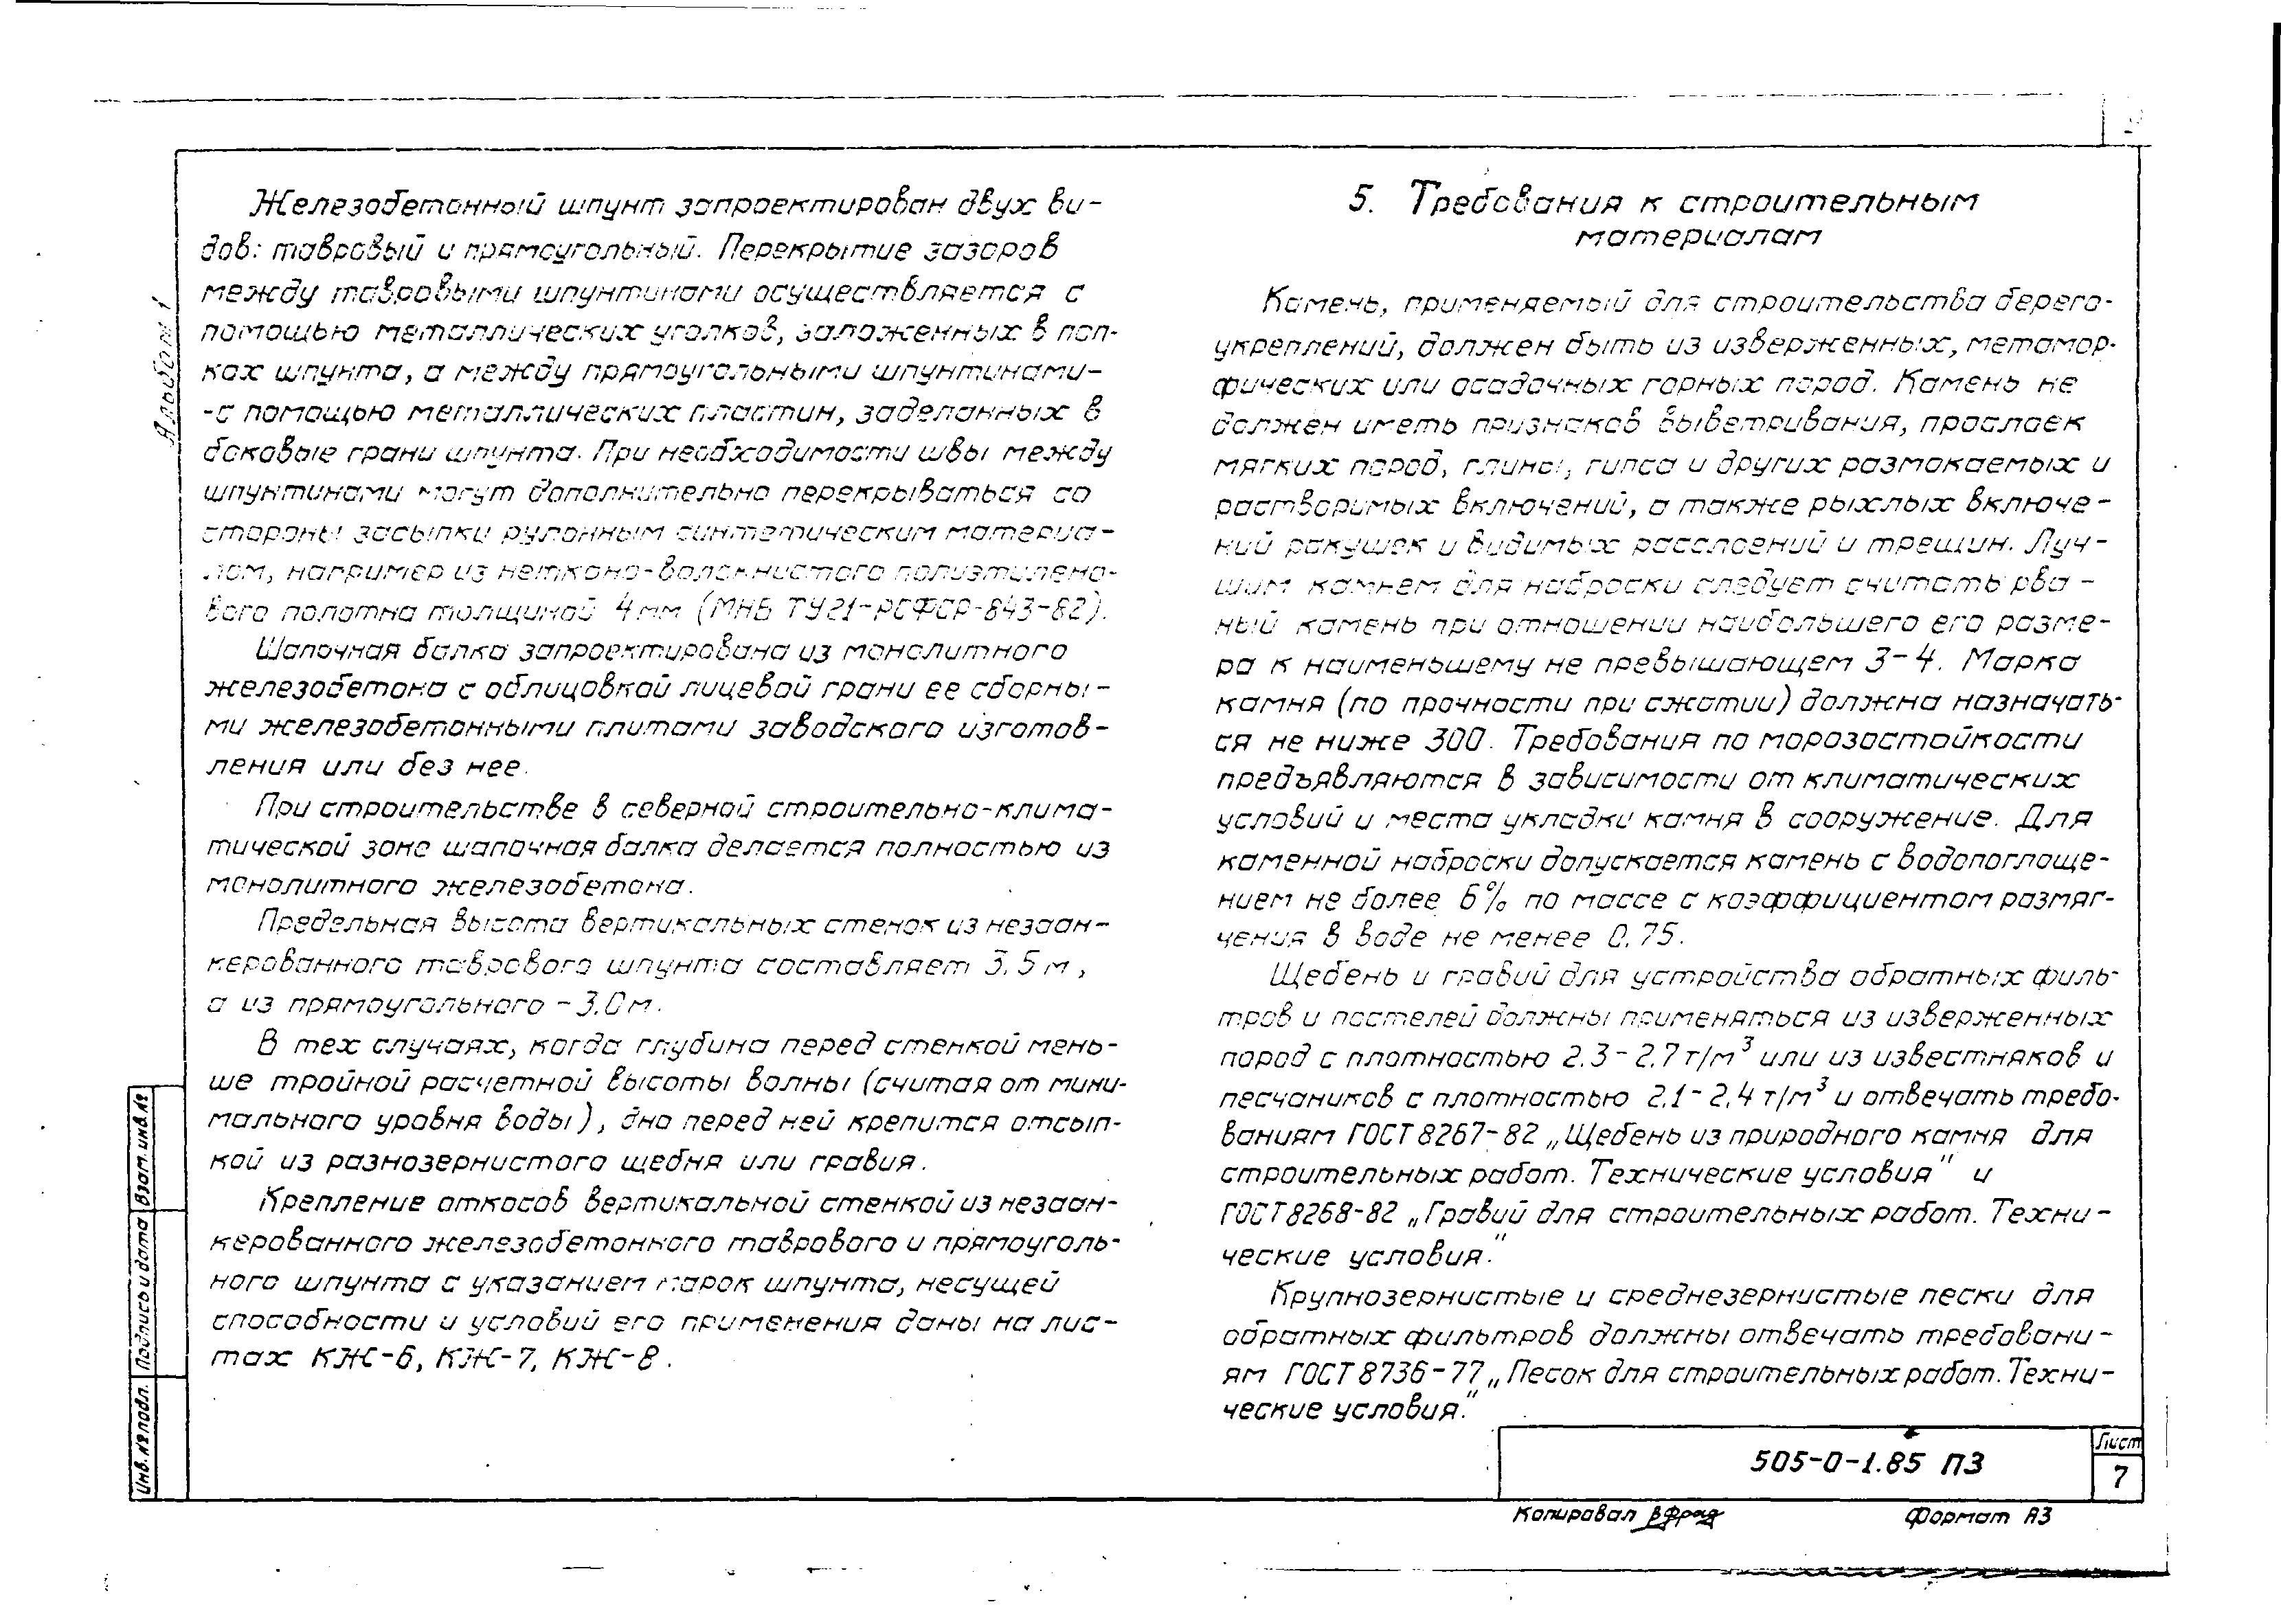 Альбом 1
Железобетонный шпунт запроектирован двух ви-
дов: тавровый и прямоугольный. Перекрытие зазоров
между тавровыми шпунтинами осуществляется с
помощью металлических уголков, заложенных в пол-
ках шпунта, а между прямоугольными шпунтинами-
-с помощью металлических пластин, заделанных в
боковые грани шпунта. При необходимости швы между
шпунтинами могут дополнительно перекрываться со
стороны засыпки рулонным синтетическим материа-
лом, например из неткано-волокнистого полиэтилено-
вого полотна толщиной 4 мм (МНБ ТУ21-РСФСР-843-82).
Шапочная балка запроектирована из монолитного
железобетона с облицовкой лицевой грани ее сборны-
ми железобетонными плитами заводского изготов-
ления или без нее.
При строительстве в северной строительно-клима-
тической зоне шапочная балка делается полностью из
монолитного железобетона.
Предельная высота вертикальных стенок из незаан-
керованного таврового шпунта составляет 3.5 м,
а из прямоугольного - 3.0 м.
В тех случаях, когда глубина перед стенкой мень-
ше тройной расчетной высоты волны (считая от мини-
мального уровня воды), дно перед ней крепится отсып-
кой из разнозернистого щебня или гравия.
Крепление откосов вертикальной стенкой из незаан-
керованного железобетонного таврового и прямоуголь-
ного шпунта с указанием марок шпунта, несущей
способности и условий его применения даны на лис-
тах КЖ-6, КЖ-7, КЖ-8.
5. Требования к строительным
материалам
Камень, применяемый для строительства берего-
укреплений, должен быть из изверженных, метамор-
фических или осадочных горных пород. Камень не
должен иметь признаков выветривания, прослоек
мягких пород, глины, гипса и других размокаемых и
растворимых включений, а также рыхлых включе-
ний ракушек и видимых расслоений и трещин. Луч-
шим камнем для наброски следует считать рва-
ный камень при отношении наибольшего его разме-
ра к наименьшему не превышающем 3-4. Марка
камня (по прочности при сжатии) должна назначать-
ся не ниже 300. Требования по морозостойкости
предъявляются в зависимости от климатических
условий и места укладки камня в сооружение. Для
каменной наброски допускается камень с водопоглоще-
нием не более 6% по массе с коэффициентом размяг-
чения в воде не менее 0.75.
Щебень и гравий для устройства обратных филь-
тров и постелей должны применяться из изверженных
пород с плотностью 2.3-2.7 т/м³ или из известняков и
песчаников с плотностью 2.1-2.4 т/м³ и отвечать требо-
ваниям ГОСТ 8267-82 „Щебень из природного камня для
строительных работ. Технические условия" и
ГОСТ 8268-82 „Гравий для строительных работ. Техни-
ческие условия."
Крупнозернистые и среднезернистые пески для
обратных фильтров должны отвечать требовани-
ям ГОСТ 8736-77 „Песок для строительных работ. Техни-
ческие условия."
Инв.№подл. Подпись и дата Взам.инв.№
505-0-1.85 ПЗ
Лист
7
Копировал
Формат А3